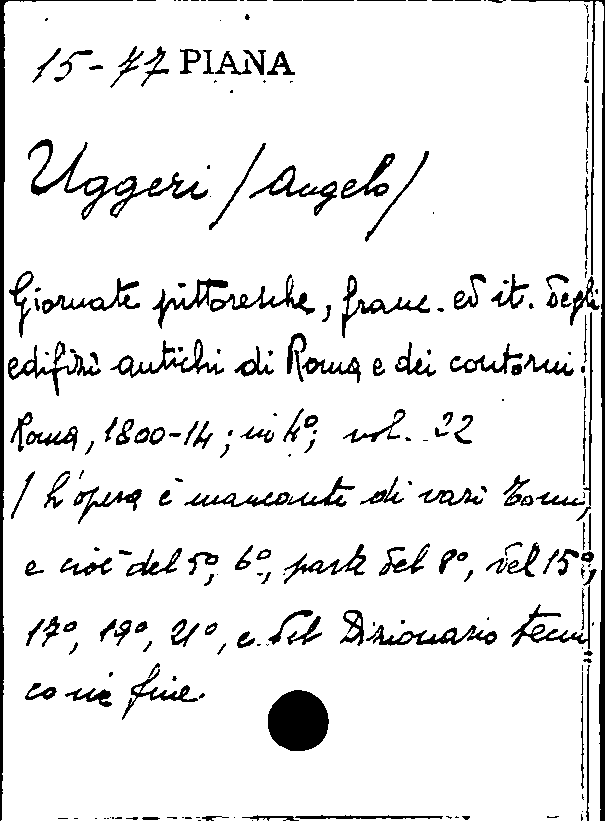 15-77 PIANA
Uggeri / Angelo /
Giornate pittoresche, franc. ed it. degli
edifizi antichi di Roma e dei contorni.
Roma, 1800-14; in 4º; vol. 22
/ L'opera è mancante di vari Tomi,
e cioè del 5º, 6º, parte del 8º, del 15º,
17º, 19º, 21º, e del Dizionario tecni
co in fine.